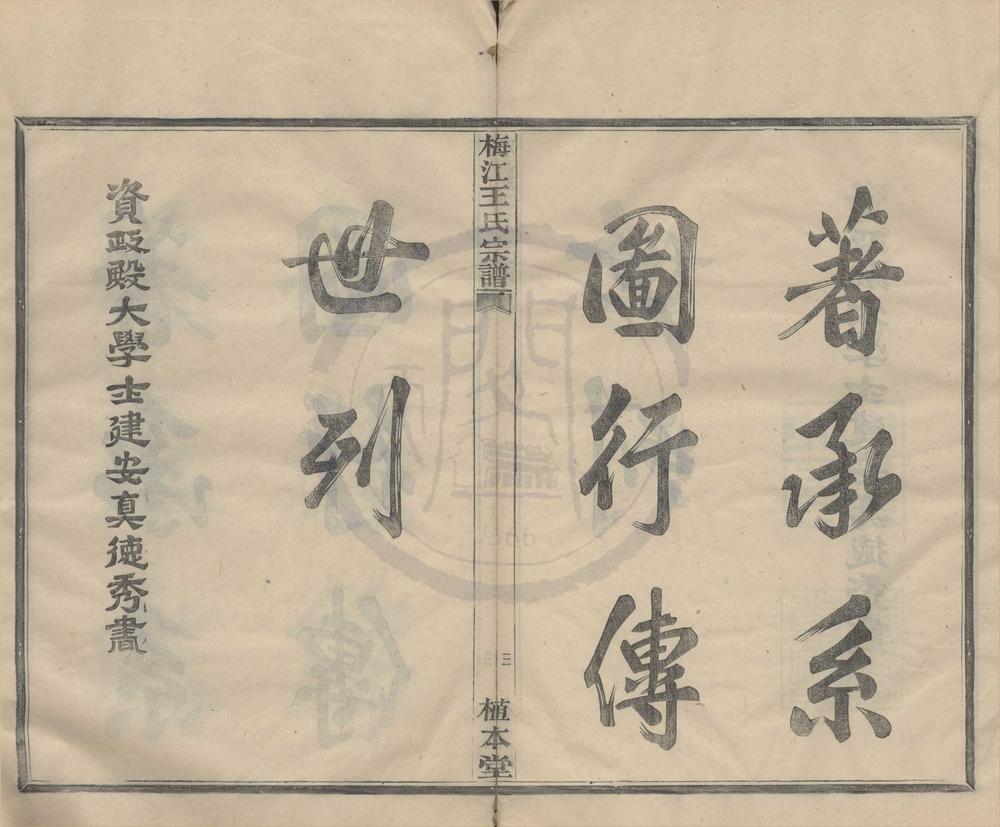 著承系
圖行傳
梅江王氏宗譜
三
植本堂
世列
資政殿大學士建安真德秀書